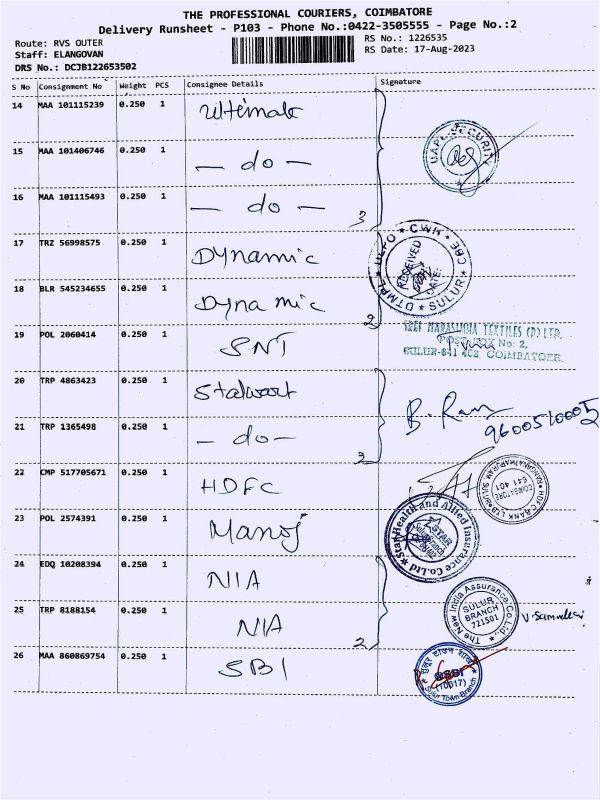 THE PROFESSIONAL COURIERS, COIMBATORE
Delivery Runsheet - P103 - Phone No.:0422-3505555 - Page No.:2
Route: RVS OUTER
Staff: ELANGOVAN
DRS No.: DCJB122653502
RS No.: 1226535
RS Date: 17-Aug-2023
S No Consignment No Weight PCS Consignee Details Signature
14 MAA 101115239 0.250 1 Ultimate
15 MAA 101406746 0.250 1 — do —
UAPL SECURITY
16 MAA 101115493 0.250 1 — do — 3
17 TRZ 56998575 0.250 1 Dynamic
DTMPL DEPO * CWH * CBE * SULUR *
RECEIVED
DATE:
18 BLR 545234655 0.250 1 Dynamic 2
19 POL 2060414 0.250 1 SNT
SREE NARASIMHA TEXTILES (P) LTD.
POST BOX No: 2,
SULUR-641 402, COIMBATORE.
20 TRP 4863423 0.250 1 Stalwart
B. Ram
9600510005
21 TRP 1365498 0.250 1 — do — 2
22 CMP 517705671 0.250 1 HDFC
HDFC BANK LTD
COIMBATORE
641 401
23 POL 2574391 0.250 1 Manoj
Star Health and Allied Insurance Co.Ltd
STAR
24 EDQ 10208394 0.250 1 NIA
25 TRP 8188154 0.250 1 NIA 2
The New India Assurance Co.Ltd.
SULUR
BRANCH
721501
26 MAA 860869754 0.250 1 SBI
SBI
(10617)
Sulur Town Branch